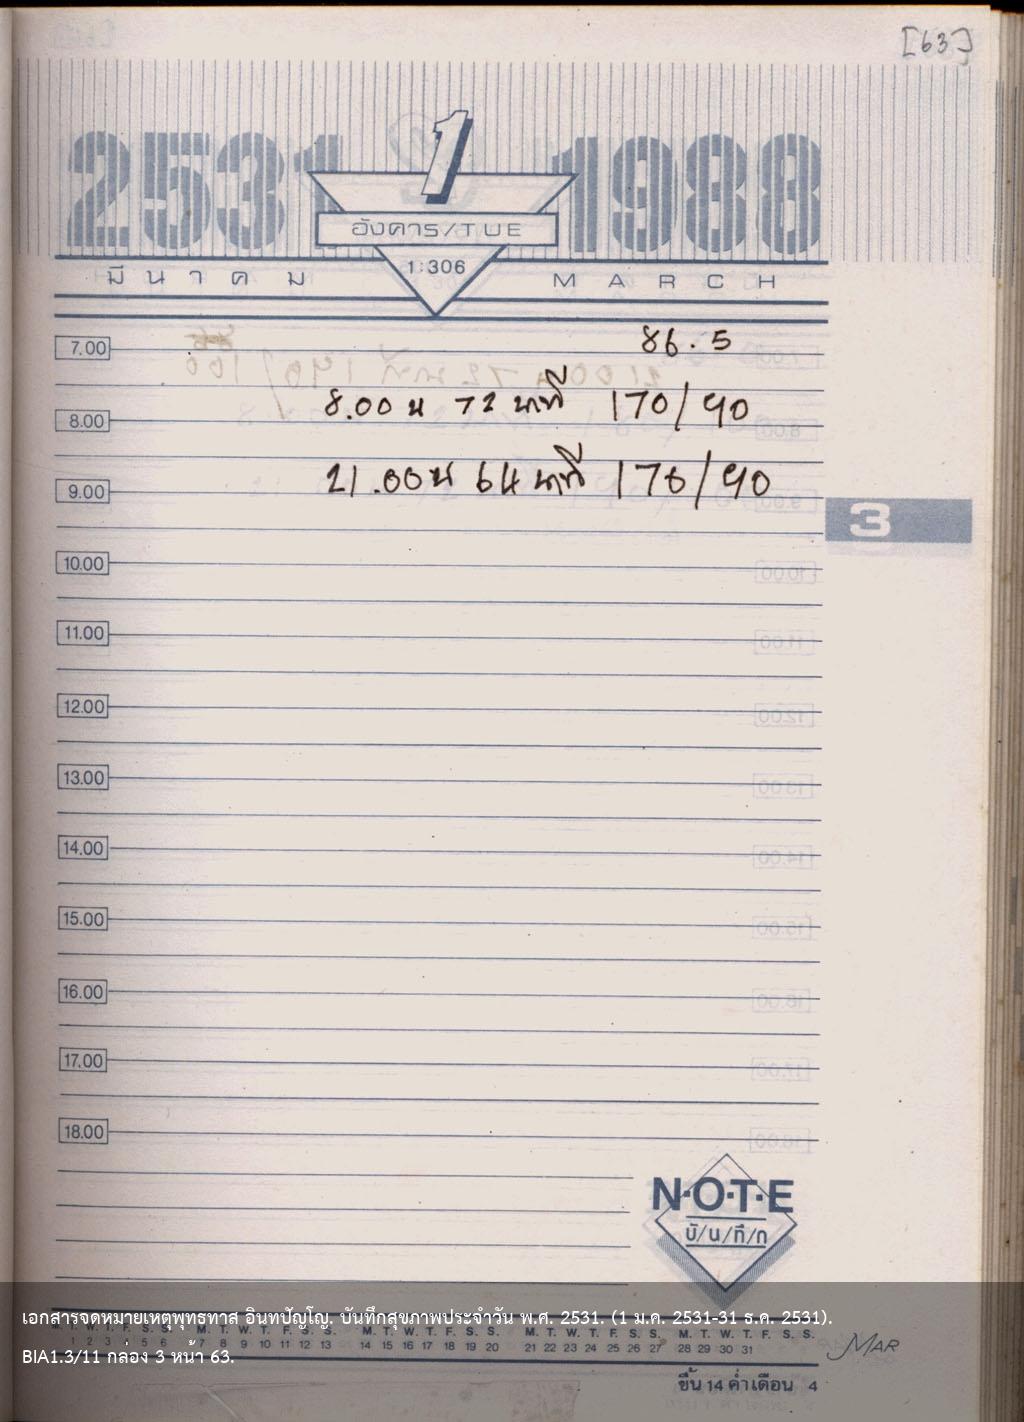 [63]
2531 1988
1
อังคาร/TUE
1:306
มีนาคม MARCH
7.00 86.5
8.00 น 72 นาที 170/90
8.00
21.00 น 64 นาที 170/90
9.00
3
10.00
11.00
12.00
13.00
14.00
15.00
16.00
17.00
18.00
N·O·T·E
บั/น/ทึ/ก
เอกสารจดหมายเหตุพุทธทาส อินทปัญโญ. บันทึกสุขภาพประจำวัน พ.ศ. 2531. (1 ม.ค. 2531-31 ธ.ค. 2531).
M. T. W. T. F. S. S. M. T. W. T. F. S. S. M. T. W. T. F. S. S. M. T. W. T. F. S. S. M. T. W. T. F. S. S.
1 2 3 4 5 6 7 8 9 10 11 12 13 14 15 16 17 18 19 20 21 22 23 24 25 26 27 28 29 30 31
BIA1.3/11 กล่อง 3 หน้า 63.
MAR
ขึ้น 14 ค่ำ เดือน 4